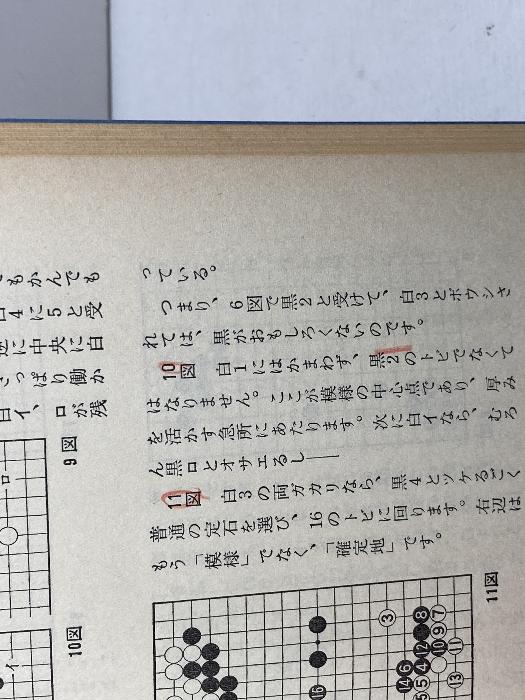 もかんでも
4に5と受
に中央に白
っぱり働か
イ、ロが残
9図
ロ
10図
イ
っている。
つまり、6図で黒2と受けて、白3とボウシさ
れては、黒がおもしろくないのです。
10図 白1にはかまわず、黒2のトビでなくて
はなりません。ここが模様の中心点であり、厚み
を活かす急所にあたります。次に白イなら、むろ
ん黒ロとオサエるし――
11図 白3の両ガカリなら、黒4とツケるごく
普通の定石を選び、16のトビに回ります。右辺は
もう「模様」でなく、「確定地」です。
11図
3
8
7
12
10
9
6
4
11
14
5
13
16